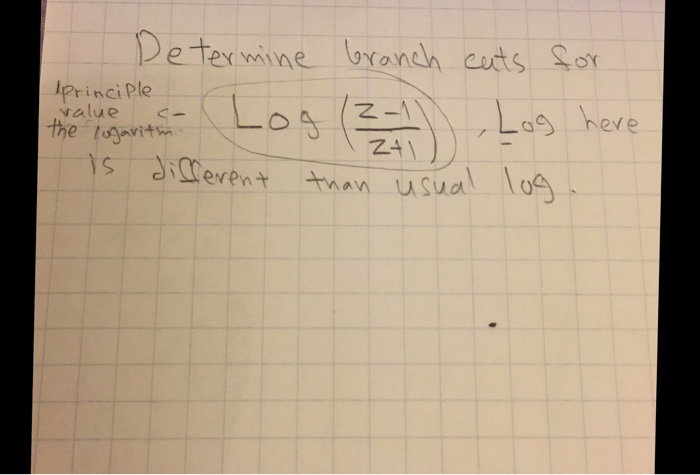 Determine branch cuts for
principle
value <-
the logaritm.
Log (z-1/z+1), Log here
is different than usual log.